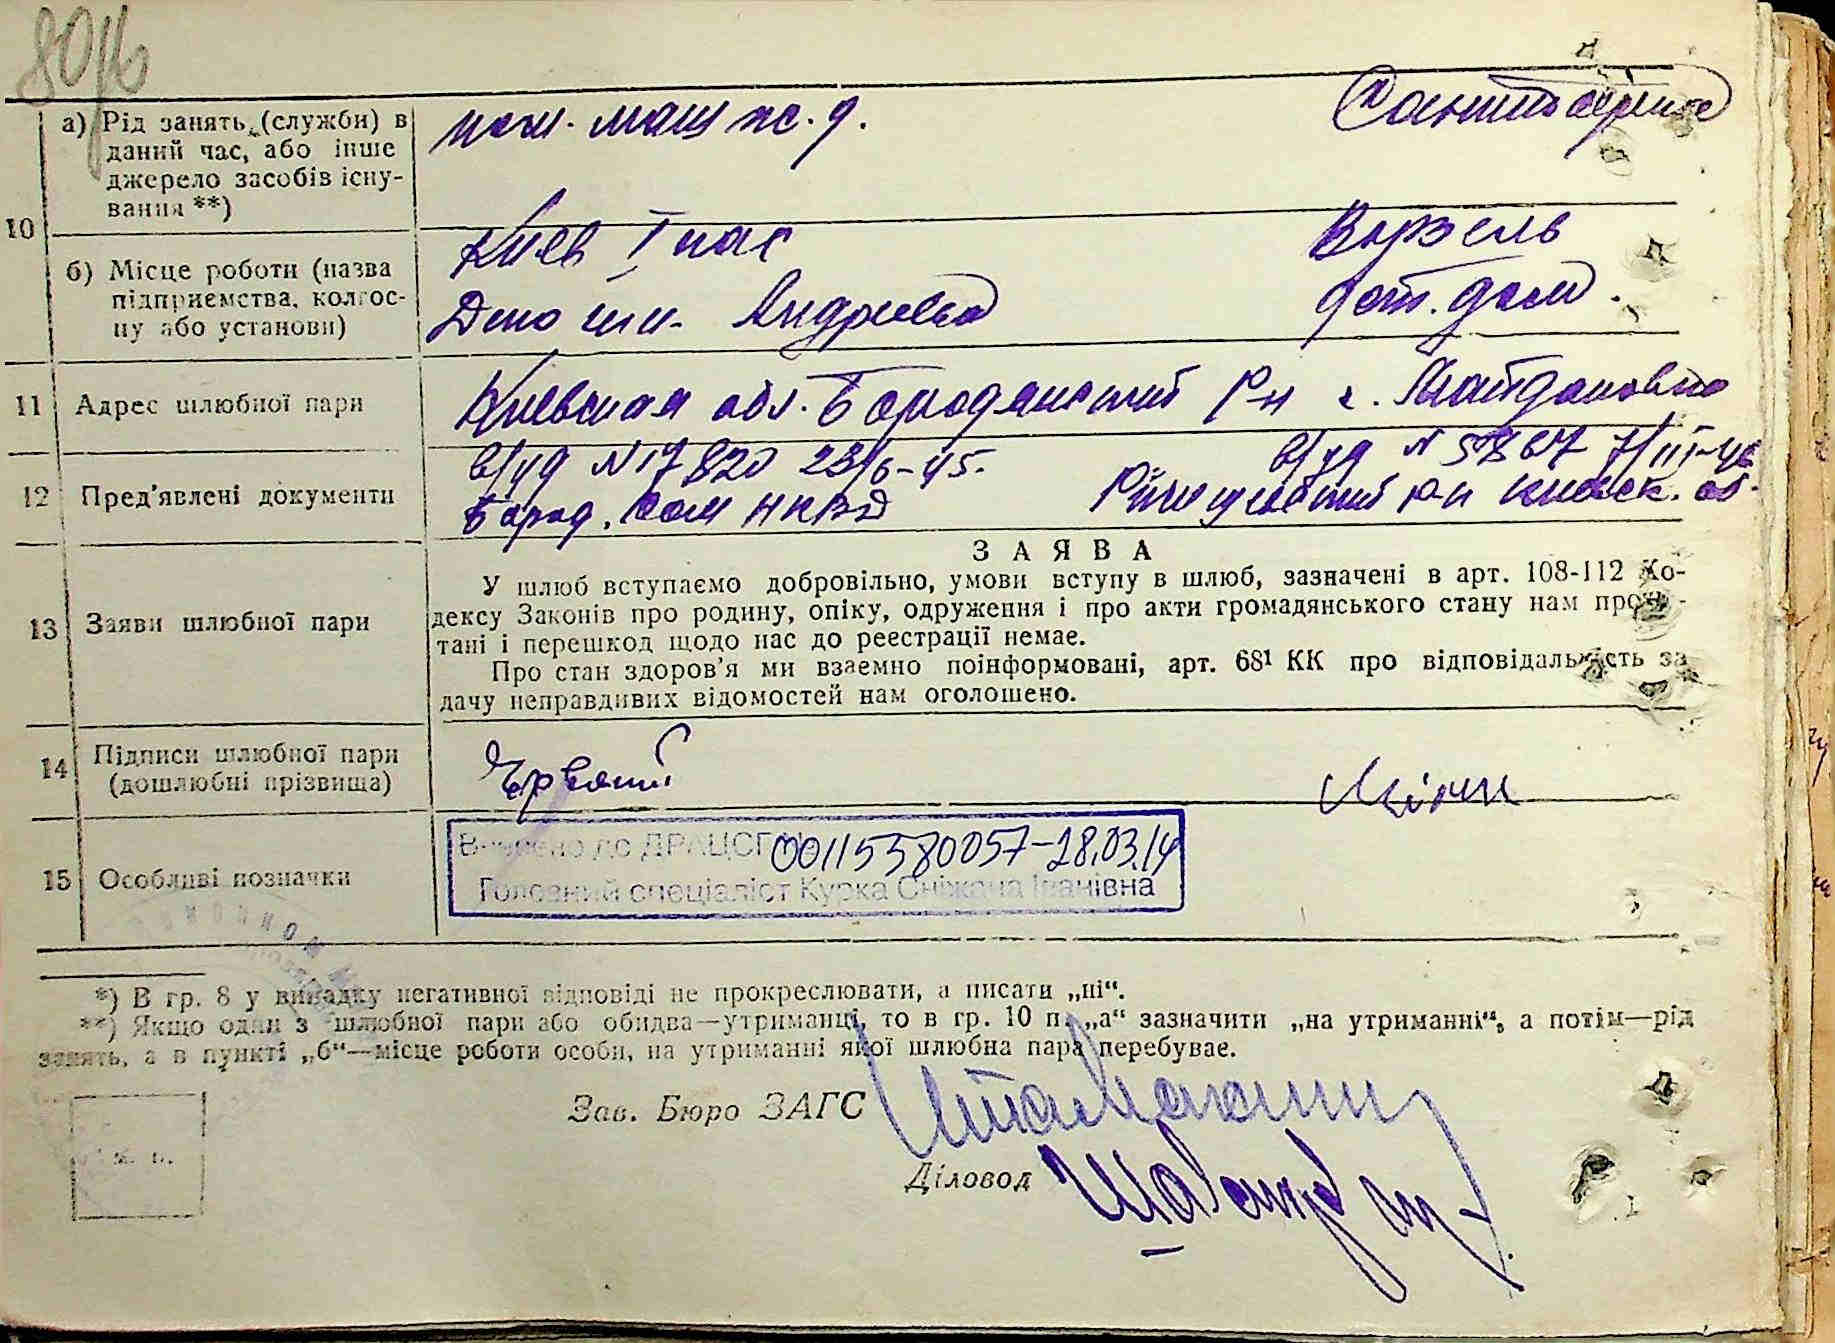 80 16
а) Рід занять (служби) в
даний час, або інше
джерело засобів існу-
вання **)
пом. маш ж. д.
Санитарка
10
б) Місце роботи (назва
підприємства, колгос-
пу або установи)
Киев I пас
Депо им. Андреева
Ворзель
дет. дом.
11 Адрес шлюбної пари
Киевская обл. Бородянский р-н с. Майдановка
12 Пред'явлені документи
в/уд N 17820 23/6-45.
Бород. НКВД
в/уд N 5867 7/III-46
р-н киевск. об.
13 Заяви шлюбної пари
ЗАЯВА
У шлюб вступаємо добровільно, умови вступу в шлюб, зазначені в арт. 108-112 Ко-
дексу Законів про родину, опіку, одруження і про акти громадянського стану нам прочи-
тані і перешкод щодо нас до реєстрації немає.
Про стан здоров'я ми взаємно поінформовані, арт. 68¹ КК про відповідальність за
дачу неправдивих відомостей нам оголошено.
14 Підписи шлюбної пари
(дошлюбні прізвища)
15 Особливі позначки
Внесено до ДРАЦСГ № 00115580057-28.03.14
Головний спеціаліст Курка Сніжана Іванівна
*) В гр. 8 у випадку негативної відповіді не прокреслювати, а писати „ні“.
**) Якщо один з шлюбної пари або обидва—утриманці, то в гр. 10 п. „а“ зазначити „на утриманні“, а потім—рід
занять, а в пункті „б“—місце роботи особи, на утриманні якої шлюбна пара перебуває.
Зав. Бюро ЗАГС
Діловод
м. п.